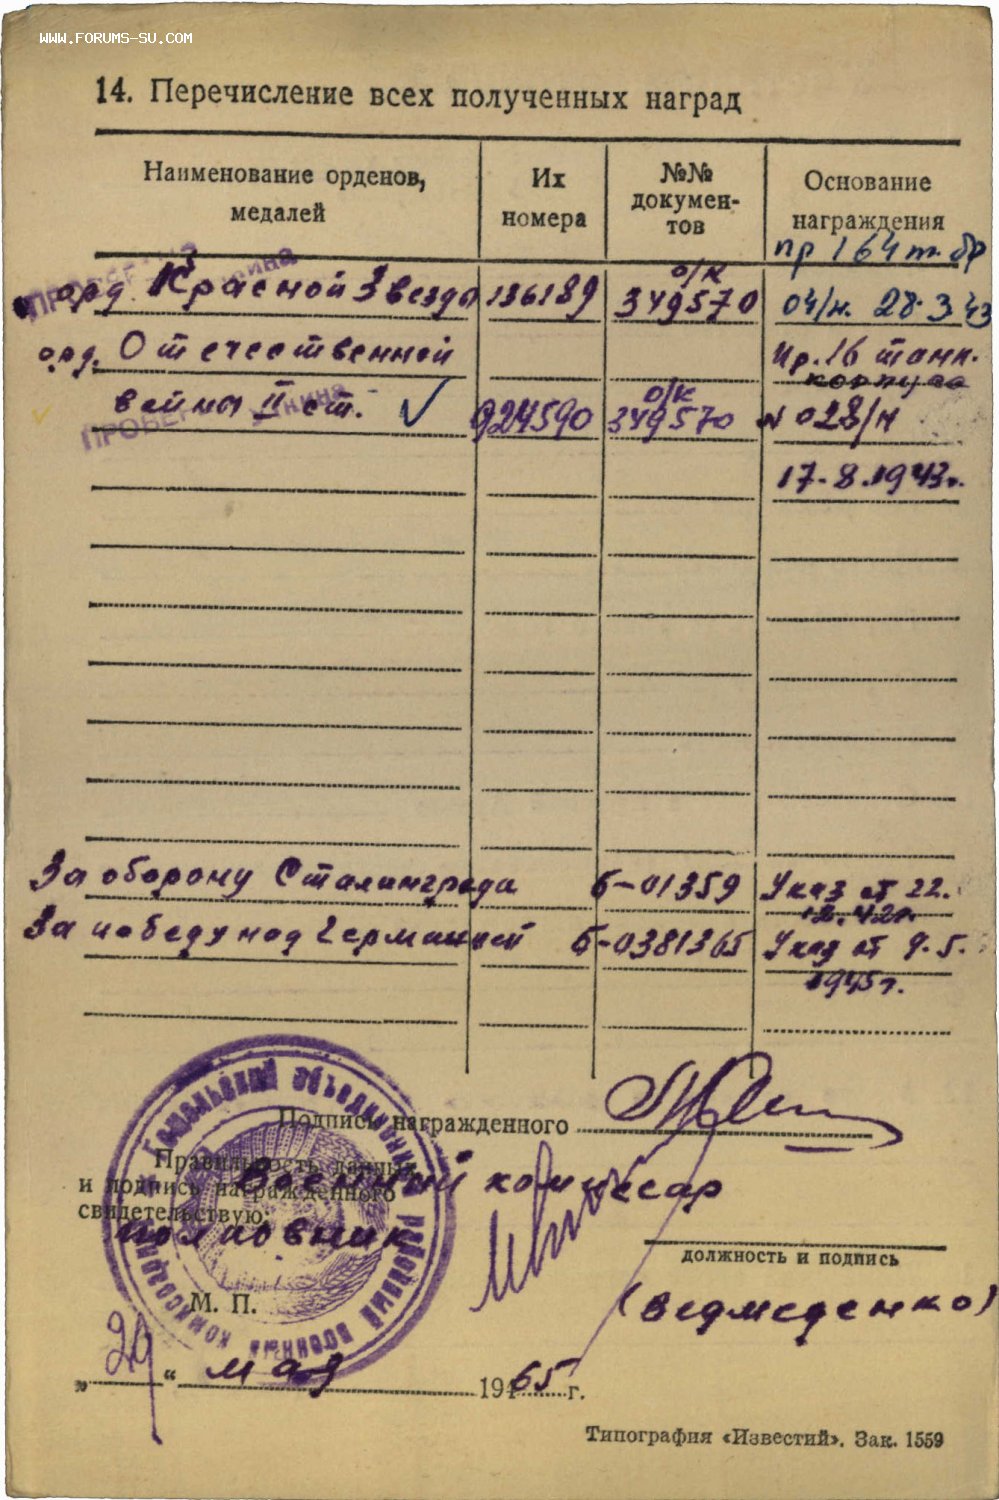 www.forums-su.com
14. Перечисление всех полученных наград
Наименование орденов, медалей
Их номера
№№ документов
Основание награждения
пр 164 т. бр
орд. Красной Звезды 136189 о/к 349570 04/н. 28.3.43
орд. Отечественной Пр. 16 танк. корпуса
войны II ст. 924590 о/к 349570 N 028/н
17.8.1943г.
За оборону Сталинграда Б-01359 Указ от 22.
12.42г.
За победу над Германией Б-0381365 Указ от 9.5.
1945г.
Подпись награжденного
Правильность данных
и подпись награжденного
свидетельствую:
Военный комиссар
полковник
должность и подпись
М. П.
(Ведмеденко)
„29“ мая 1965 г.
объединенный районный военный комиссариат
Типография «Известий». Зак. 1559